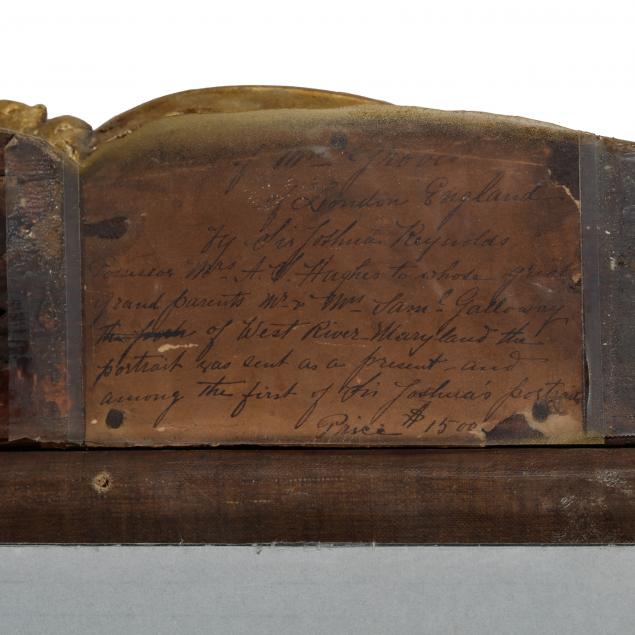 of Mr Grove
of London England
by Sir Joshua Reynolds
Mrs A. C. Hughes to whose great
grand parents Mr & Mrs Saml Galloway
of West River Maryland the
portrait was sent as a present and
among the first of Sir Joshua's portraits
Price $1500